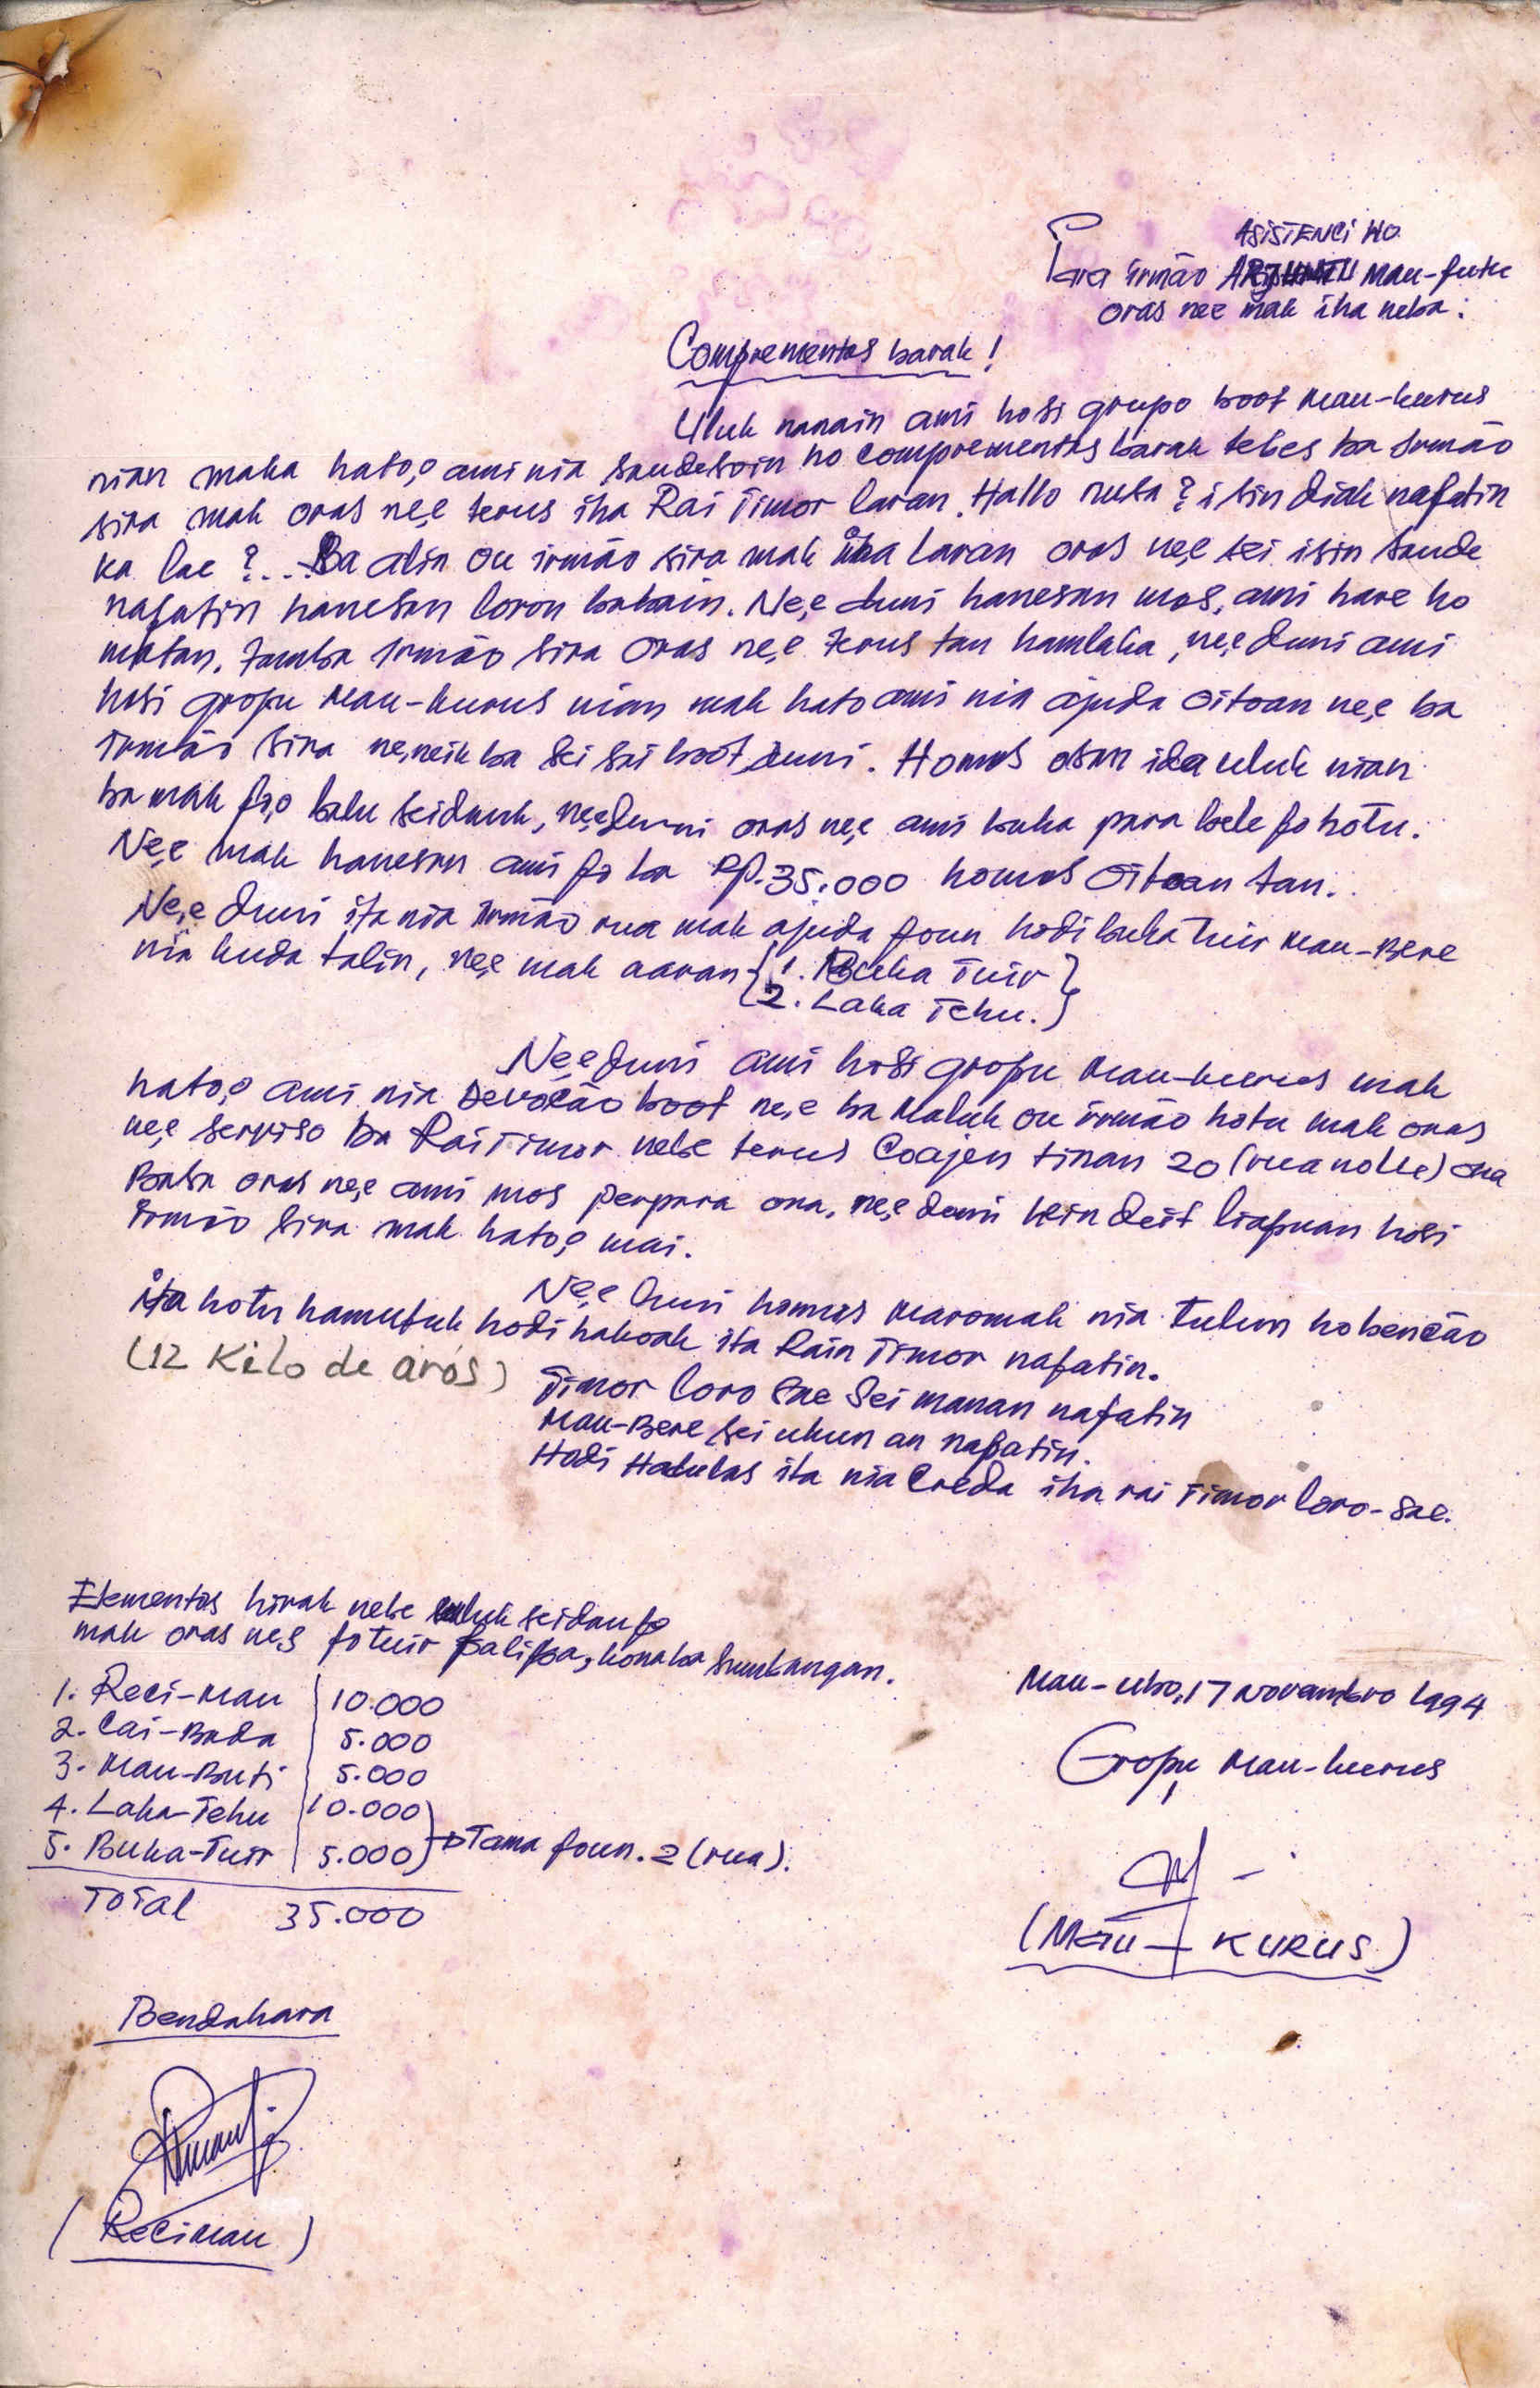 ASISTENCI HO
Para irmão Mau-futu
oras nee mak iha neba:
Comprementos barak!
Uluk nanain ami hosi grupo boot Mau-kurus
nian maka hato,o ami nia saudesoin ho comprementos barak tebes ba irmão
sira mak oras ne,e terus iha Rai Timor laran. Hallo nusa? isin diak nafatin
ka lae?... Ba alin ou irmão sira mak iha laran oras ne,e sei isin saude
nafatin hanesan loron babain. Ne,e duni hanesan mos, ami hare ho
matan. Tamba irmão sira oras ne,e terus tan hamlaha, ne,e duni ami
hosi gropu Mau-kurus nian mak hato ami nia ajuda oitoan ne,e ba
irmão sira ne,neik ba sei sai boot duni. Homos osan ida uluk nian
ba mak fo,o balu seidauk, ne,e duni oras ne,e ami buka para bele fo hotu.
Ne,e mak hanesan ami fo ba Rp.35.000 homos oitoan tan.
Ne,e duni ita nia irmão rua mak ajuda foun hodi buka tuir Mau-Bere
nia kuda talin, ne,e mak naran { 1. Buka Tuir }
{ 2. Laka Tehu. }
Ne,e duni ami hosi gropu Mau-kurus mak
hato,o ami nia devoção boot ne,e ba Maluk ou irmão hotu mak oras
ne,e serviso ba Rai Timor nebe terus Coajen tinan 20 (rua nolu) ona
Basa oras ne,e ami mos perpara ona, ne,e duni hein deit liafuan hosi
irmão sira mak hato,o mai.
Ne,e duni homos Maromak nia tulun ho benção
ita hotu hamutuk hodi hakoak ita Rain Timor nafatin.
(12 Kilo de arós)
Timor loro sae sei manan nafatin
Mau-Bere sei ukun an nafatin.
Hodi Habulas ita nia Creda iha rai Timor loro-sae.
Elementos hirak nebe uluk seidau fo
mak oras ne,e fo tuir falifa, kona ba sumbangan.
1. Reci-Mau 10.000
2. Cai-Bada 5.000
3. Mau-Buti 5.000
4. Laka-Tehu 10.000
5. Buka-Tuir 5.000 } Tama foun. 2 (rua).
Total 35.000
Mau-ubo, 17 Novembro 1994
Gropu Mau-kurus
(Mau-KURUS)
Bendahara
(Reciman)